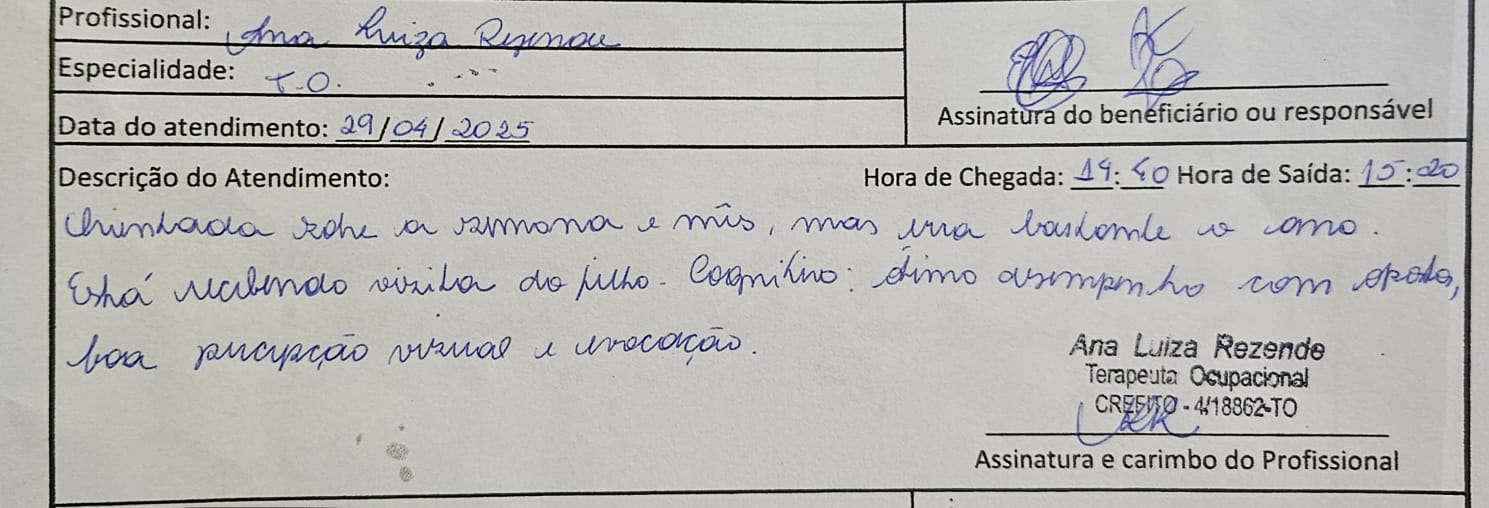 Profissional: Ana Luiza Rezende
Especialidade: T.O.
Data do atendimento: 29/04/2025
Assinatura do beneficiário ou responsável
Descrição do Atendimento: Hora de Chegada: 14:40 Hora de Saída: 15:20
Orientada sobre a semana e mês, mas erra bastante o ano.
Está recebendo visita do filho. Cognitivo: ótimo desempenho com apoio,
boa percepção visual e evocação.
Ana Luiza Rezende
Terapeuta Ocupacional
CREFITO - 4/18862-TO
Assinatura e carimbo do Profissional